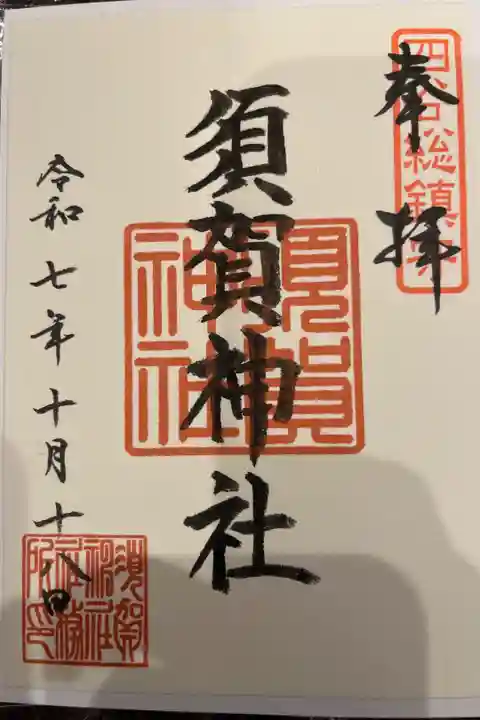 四谷総鎮守
奉拝
須賀神社
須賀神社
令和七年十月十八日
須賀神社社務所印